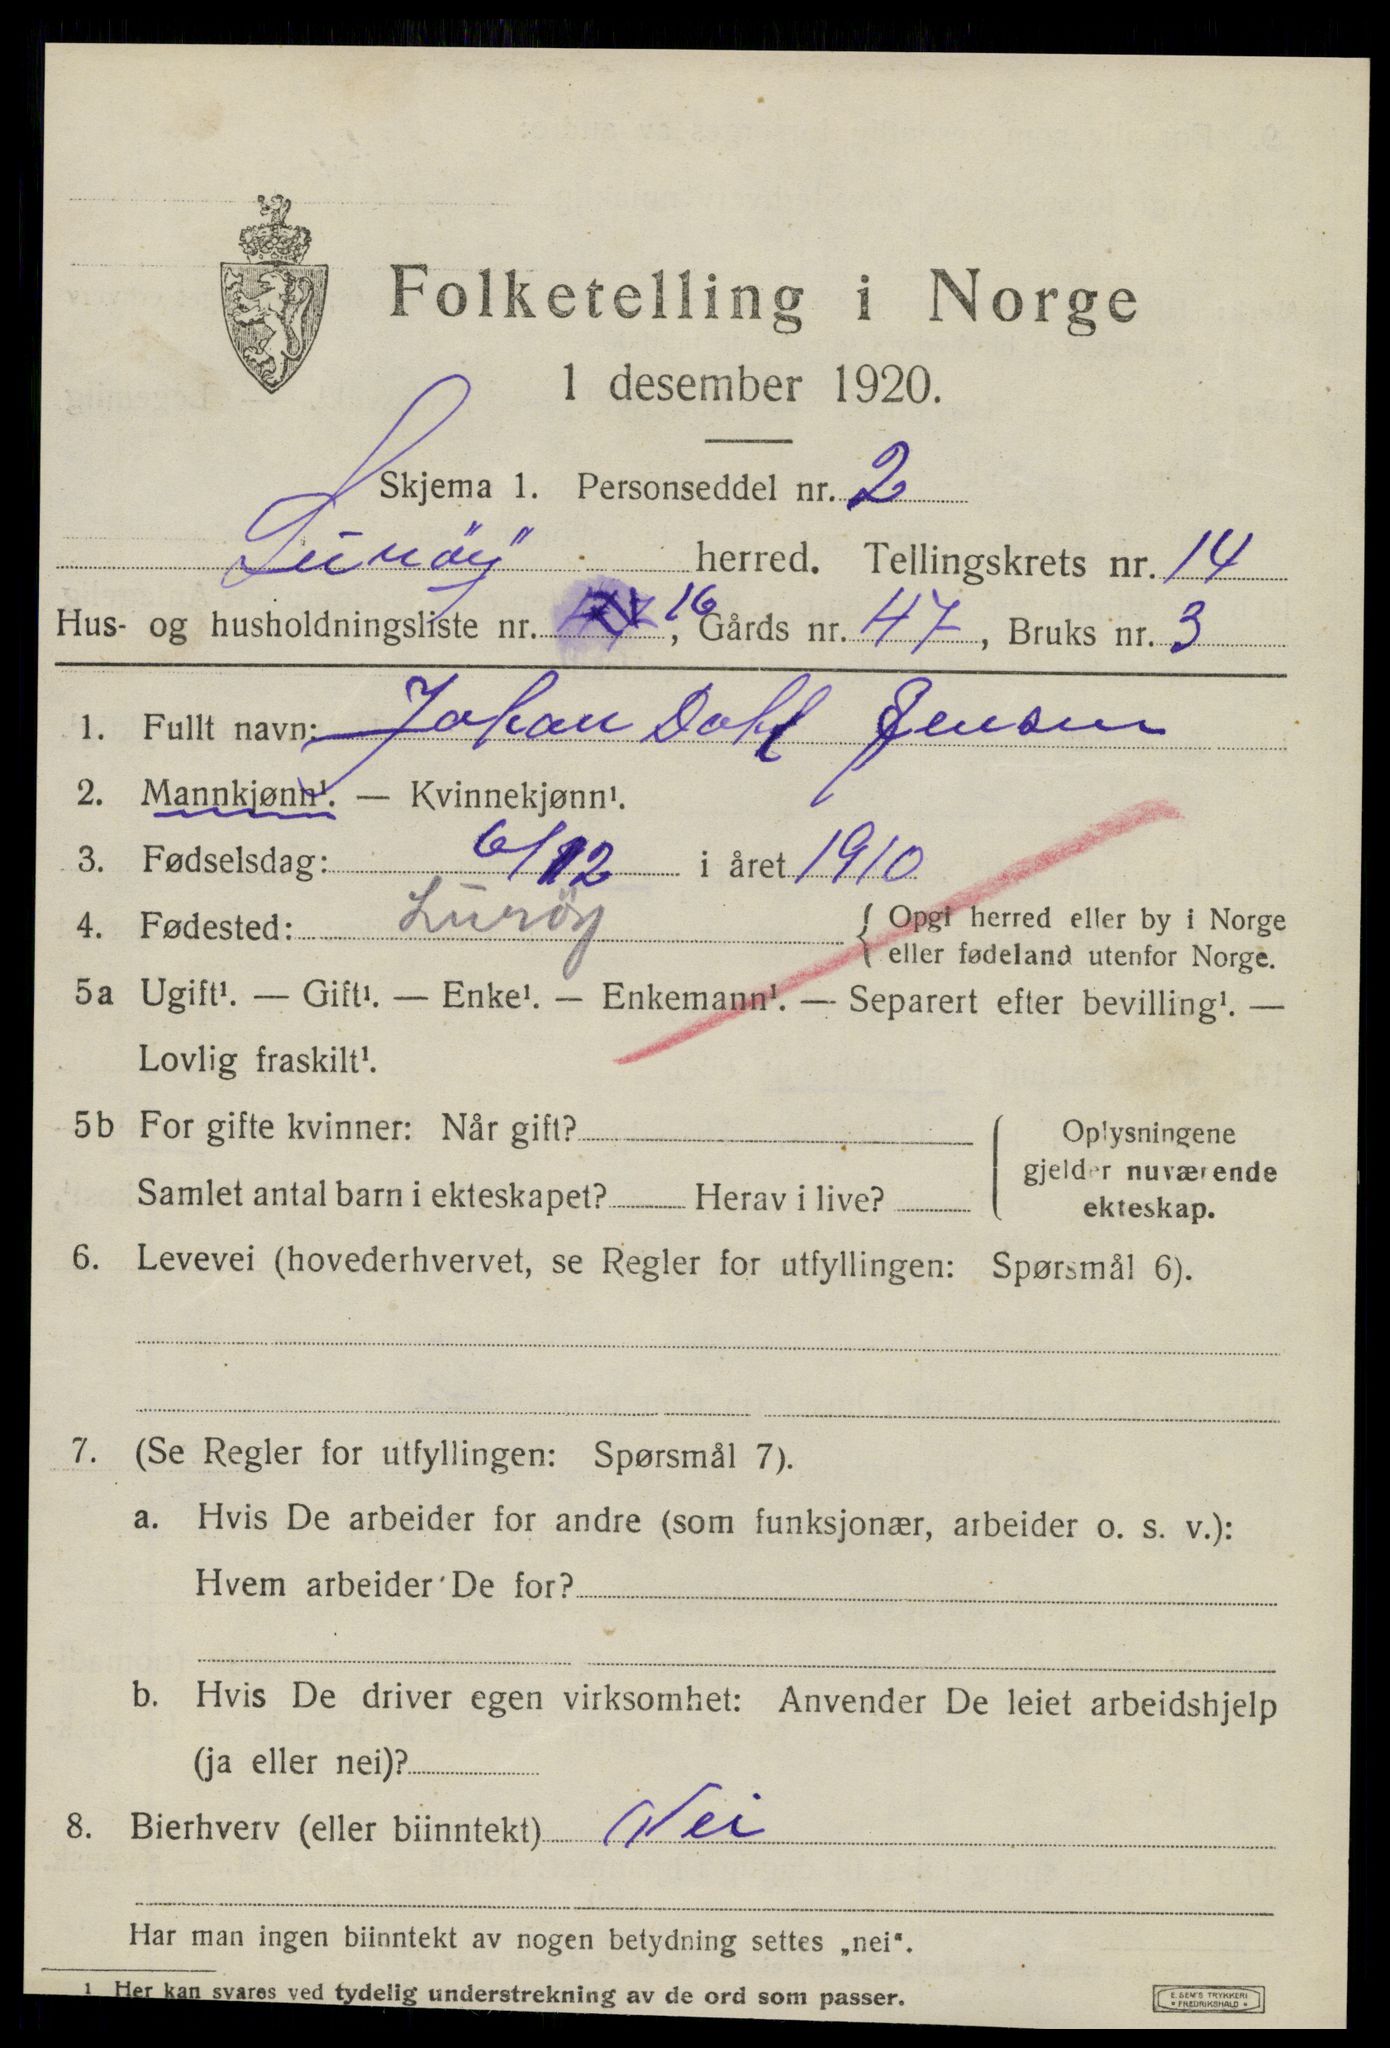 Folketelling i Norge
1 desember 1920.
Skjema 1. Personseddel nr. 2
Lurøy herred. Tellingskrets nr. 14
Hus- og husholdningsliste nr. 16, Gårds nr. 47, Bruks nr. 3
1. Fullt navn: Johan Dahl Jensen
2. Mannkjønn¹. — Kvinnekjønn¹.
3. Fødselsdag: 6/12 i året 1910
4. Fødested: Lurøy { Opgi herred eller by i Norge
eller fødeland utenfor Norge.
5a Ugift¹. — Gift¹. — Enke¹. — Enkemann¹. — Separert efter bevilling¹. —
Lovlig fraskilt¹.
5b For gifte kvinner: Når gift?
Samlet antal barn i ekteskapet? Herav i live?
Oplysningene
gjelder nuværende
ekteskap.
6. Levevei (hovederhvervet, se Regler for utfyllingen: Spørsmål 6).
7. (Se Regler for utfyllingen: Spørsmål 7).
a. Hvis De arbeider for andre (som funksjonær, arbeider o. s. v.):
Hvem arbeider De for?
b. Hvis De driver egen virksomhet: Anvender De leiet arbeidshjelp
(ja eller nei)?
8. Bierhverv (eller biinntekt) Nei
Har man ingen biinntekt av nogen betydning settes „nei“.
1 Her kan svares ved tydelig understrekning av de ord som passer.
E. SEM'S TRYKKERI
• FREDRIKSHALD •